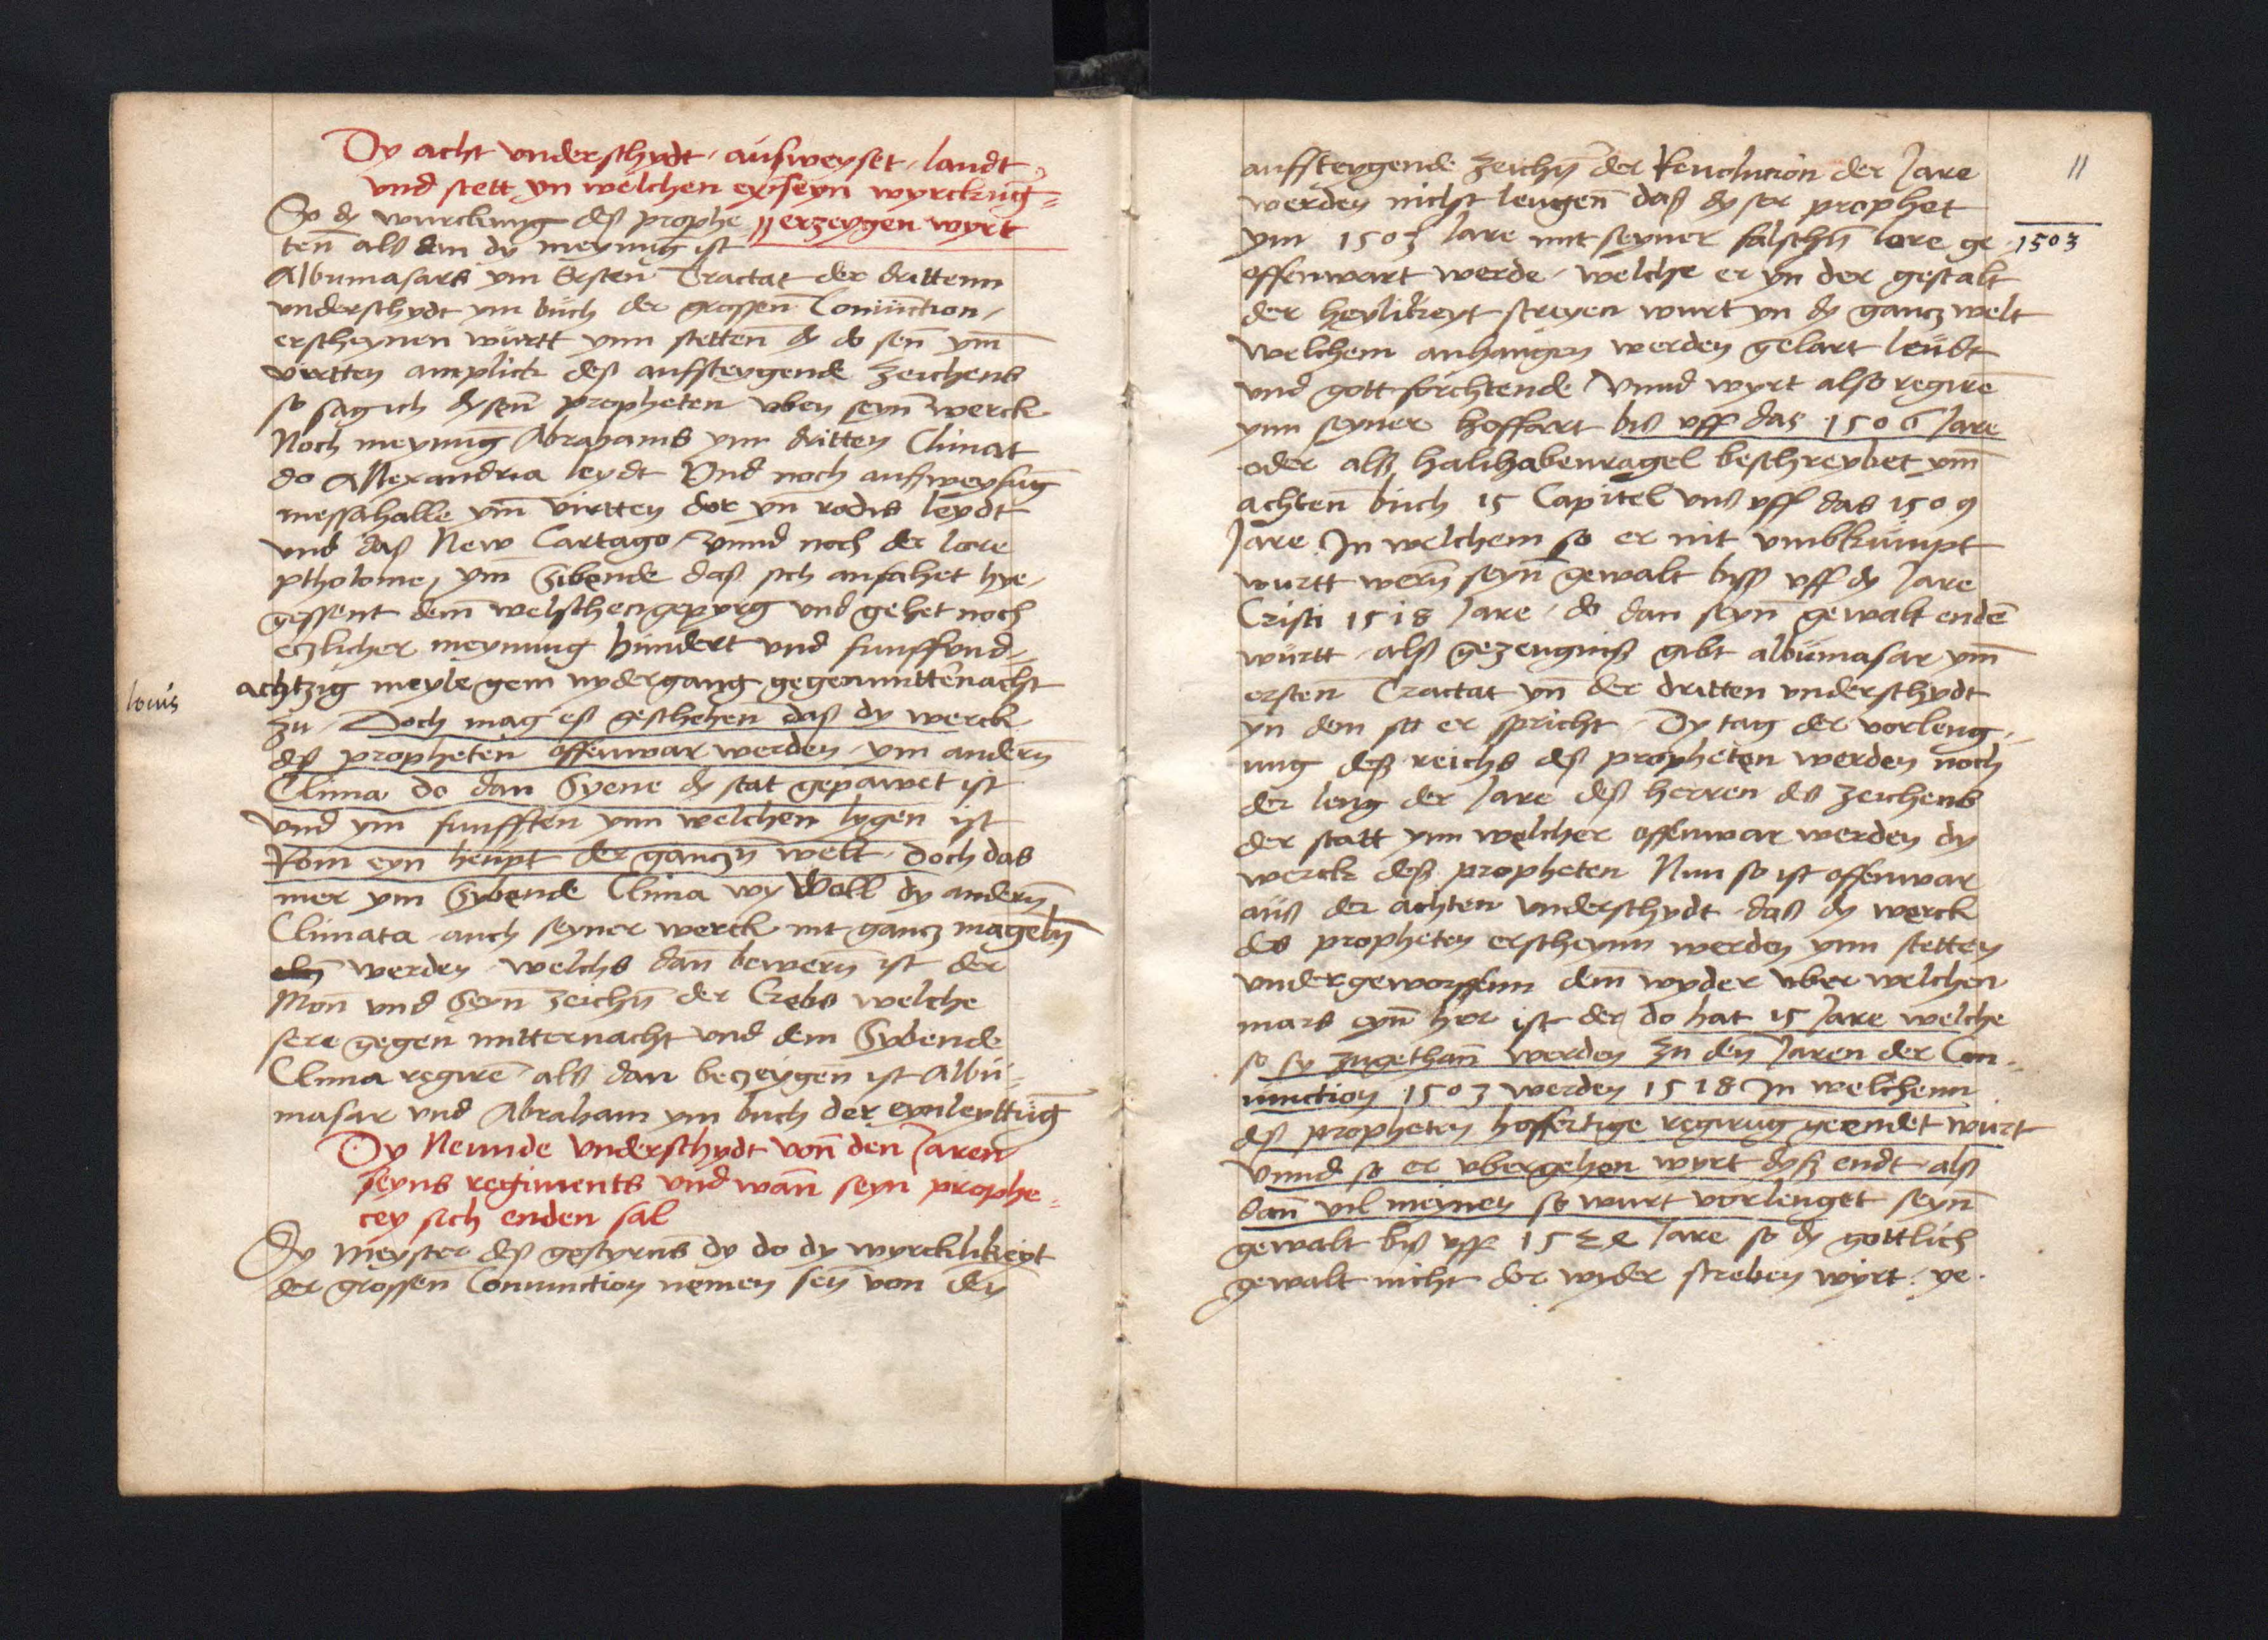 Dy acht underschydt, außweyset, landt
und stett yn welchen er seyn wyrckung
So dy wurckung deß prophe || erzeygen wyrt
ten als dan dy meynung ist
Albumasars ym Ersten Tractat der drittenn
underschydt ym buch der grossen Coniunction,
erscheynen wurtt ynn stetten dy do sen ym
virtten anplick deß auffsteygende Zeichens
so sag ich dysen propheten uben seyn werck
Noch meynung Abrahams ynn dritten Climat
do Allexandria leydt Und noch außweysung
messahalle ym virtten dor yn rodis leydt
und daß New Cartago, Unnd noch der lore
ptholome, ym Sibende daß sich anfahet hye,
gessent dem welschen gepyrg und gehet noch
etzlicher meynung hundert und funffund,
achtzig meyle gem nydergang gegen mittenacht
zu, Doch mag eß geschehen daß dy werck
deß propheten offenwar werden, ym andern
Clima do dan Syene dy stat gepawet ist
und ym funfften ynn welchen lygen ist
Rom eyn heupt der ganczen welt, doch das
mer ym Sybende Clima wy Woll dy andern
Climata auch seyner werck nit gancz mageln
werden, welchs dan bewern ist der
Mon und Seyn Zeichen der Crebs welche
sere gegen mitternacht und dem Sybende
Clima regiren als dan beczeygen ist Albu-
masar und Abraham ym buch der eynleyttung
Dy Neunde underschydt von den Jaren
seyns regiments und wan seyn prophe-
cey sich enden sal
Dy Meyster deß gestyrns dy do dy wyrcklikeyt
der grossen Coniunction nemen sen von den
locus
11
auffsteygende Zeichen der Revolucion der Jare
werden nicht leugen daß dyser prophet
ym 1503 Jare mit seyner falschen lore ge
1503
offenwart werde, welche er yn der gestalt
der heylikeyt streyen wurt yn dy gancz welt
Welchem anhangen werden gelart leudt
und gott forchtende Unnd wyrt also regiren
ynn seyner hoffart biß uff daz 1506 Jare
oder alß halihabenragel beschreybet ym
achten buch 15 Capitel unß uff das 1509
Jare In welchem so er nit umbkumpt
wurtt wern seyn gewalt biß uff dy Jare
Cristi 1518 Jare, do dan seyn gewalt enden
wurtt, alß gezeugniß gibt albumasar ym
ersten Tractat yn der dritten underschydt
yn dem so er spricht, Dy tag der vorleng,
ung deß reichs deß propheten werden noch
der leng der Jare deß herren des Zeichens
der statt ynn welcher offenwar werden dy
werck deß propheten Nun so ist offenwar
auß der achten underschydt, daß dy werck
des propheten erscheynn werden ynn stetten
undergeworffenn dem wyder uber welchen
mars eyn her ist der do hat 15 Jare welche
so sy zugethan werden zu den Jaren der Con-
iunction 1503 werden 1518 In welchenn
deß propheten hoffertige regirung geendet wurt
Unnd so er ubergehen wyrt dyß endt alß
dan vil meynen so wurt vorlenget seyn
gewalt biß uff Jare so dy gottlich
gewalt nicht dor wyder streben wyrt, ye.